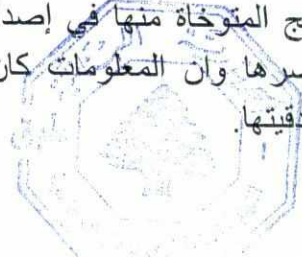 ج المتوخاة منها في إصد
سرها وان المعلومات كان
دقيتها.